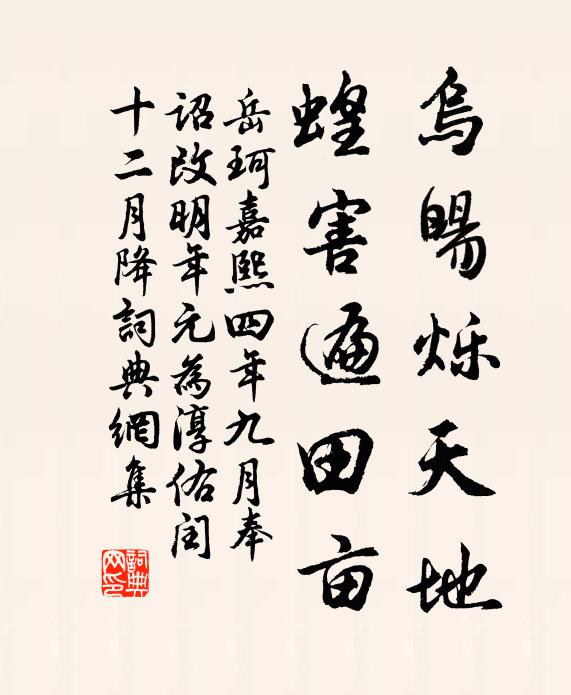 烏暘烁天地
蝗害遍田亩
岳珂嘉熙四年九月奉
詔改明年元為淳佑闰
十二月降詞典網集
詞典网印